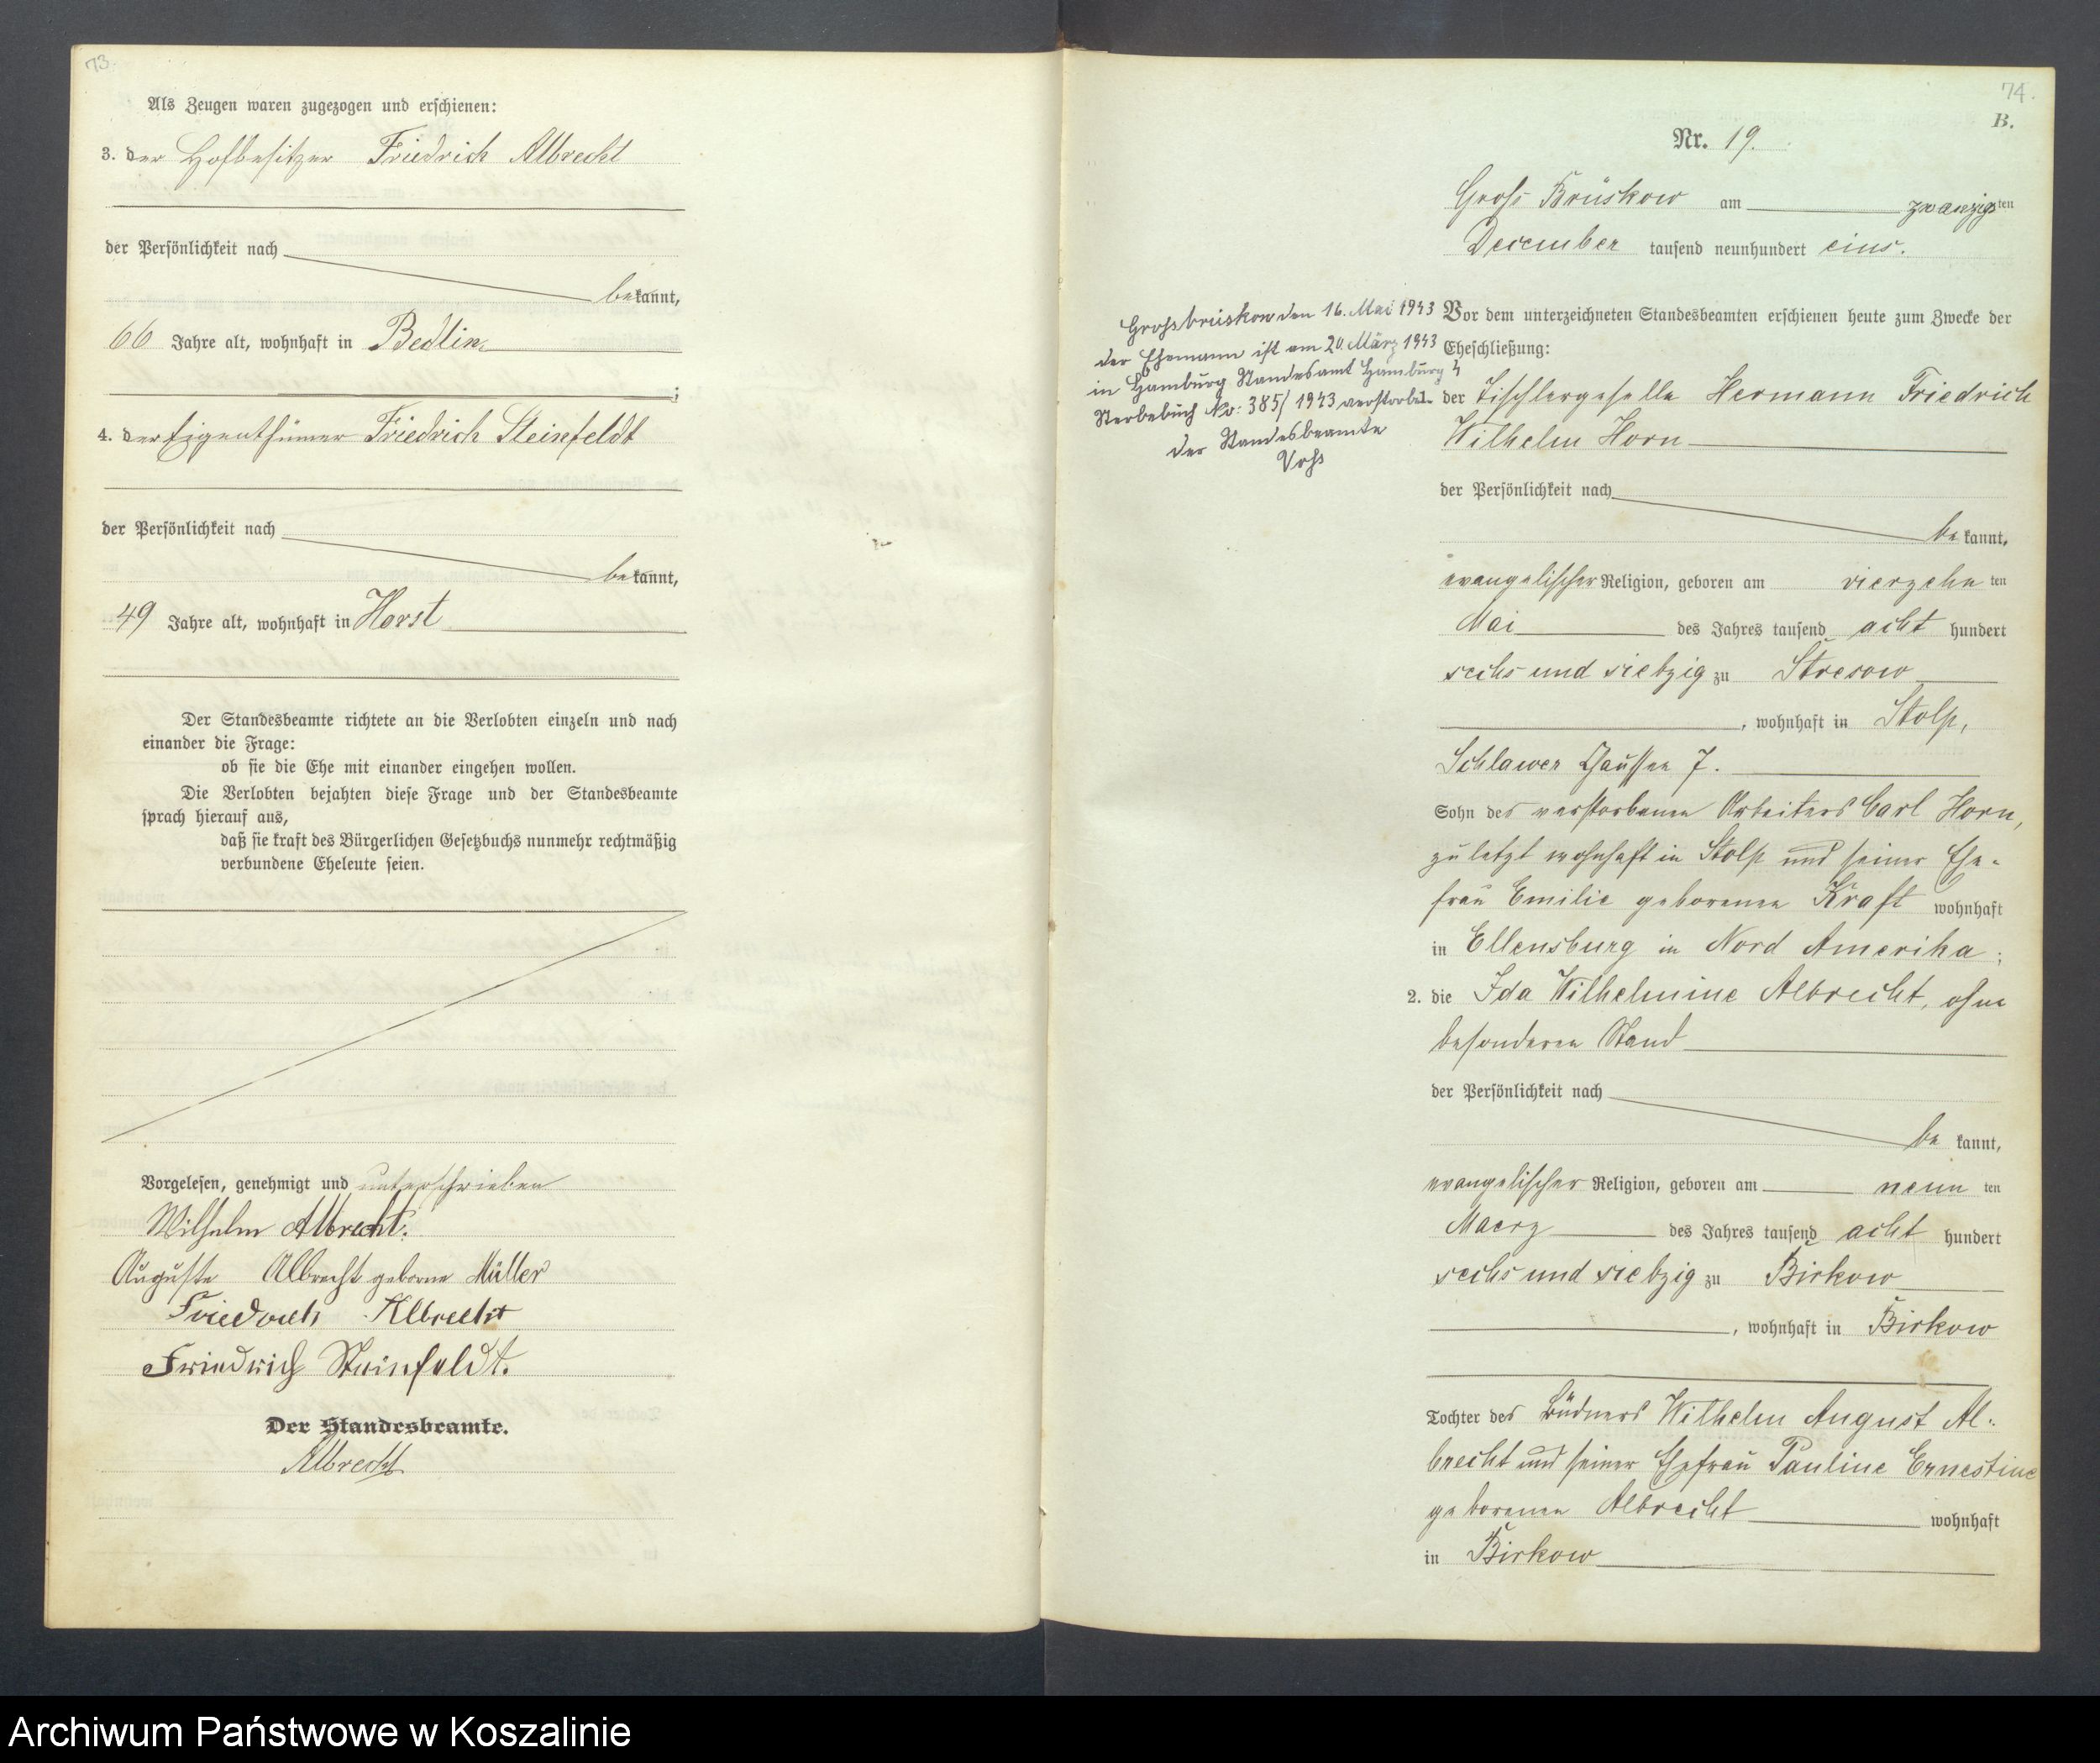 73.
Als Zeugen waren zugezogen und erschienen:
3. der Hofbesitzer Friedrich Albrecht
der Persönlichkeit nach
bekannt,
66 Jahre alt, wohnhaft in Bedlin
;
4. der Eigenthümer Friedrich Steinfeldt
der Persönlichkeit nach
bekannt,
49 Jahre alt, wohnhaft in Horst
Der Standesbeamte richtete an die Verlobten einzeln und nach
einander die Frage:
ob sie die Ehe mit einander eingehen wollen.
Die Verlobten bejahten diese Frage und der Standesbeamte
sprach hierauf aus,
daß sie kraft des Bürgerlichen Gesetzbuchs nunmehr rechtmäßig
verbundene Eheleute seien.
Vorgelesen, genehmigt und unterschrieben
Wilhelm Albrecht.
Auguste Albrecht geborne Müller
Friedrich Albrecht
Friedrich Steinfeldt.
Der Standesbeamte.
Albrecht
74.
B.
Nr. 19.
Gross Brüskow am zwanzigsten
December tausend neunhundert eins.
Grossbrüskow den 16. Mai 1943
der Ehemann ist am 20. März 1943
in Hamburg Standesamt Hamburg 4
Sterbebuch No: 385/1943 verstorben
der Standesbeamte
Voss
Vor dem unterzeichneten Standesbeamten erschienen heute zum Zwecke der
Eheschließung:
der Tischlergeselle Hermann Friedrich
Wilhelm Horn
der Persönlichkeit nach
bekannt,
evangelischer Religion, geboren am vierzehnten
Mai des Jahres tausend acht hundert
sechs und siebzig zu Stresow
, wohnhaft in Stolp,
Schlawer Chaussee 7.
Sohn des verstorbenen Arbeiters Carl Horn,
zuletzt wohnhaft in Stolp und seiner Ehe-
frau Emilie geborenen Kraft wohnhaft
in Ellensburg in Nord Amerika;
2. die Ida Wilhelmine Albrecht, ohne
besonderen Stand
der Persönlichkeit nach
bekannt,
evangelischer Religion, geboren am neunten
Maerz des Jahres tausend acht hundert
sechs und siebzig zu Birkow
, wohnhaft in Birkow
Tochter des Büdners Wilhelm August Al-
brecht und seiner Ehefrau Pauline Ernestine
geborenen Albrecht wohnhaft
in Birkow
Archiwum Państwowe w Koszalinie